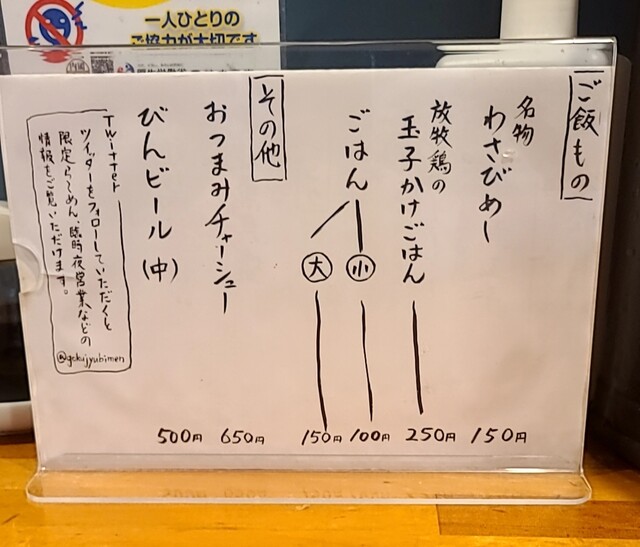 一人ひとりの
ご協力が大切です
ご飯もの
名物
わさびめし 150円
放牧鶏の
玉子かけごはん 250円
ごはん
小 100円
大 150円
その他
おつまみチャーシュー 650円
びんビール(中) 500円
Twitter
ツイッターをフォローしていただくと
限定らーめん、臨時夜営業などの
情報をご覧いただけます。
@gokujyubimen